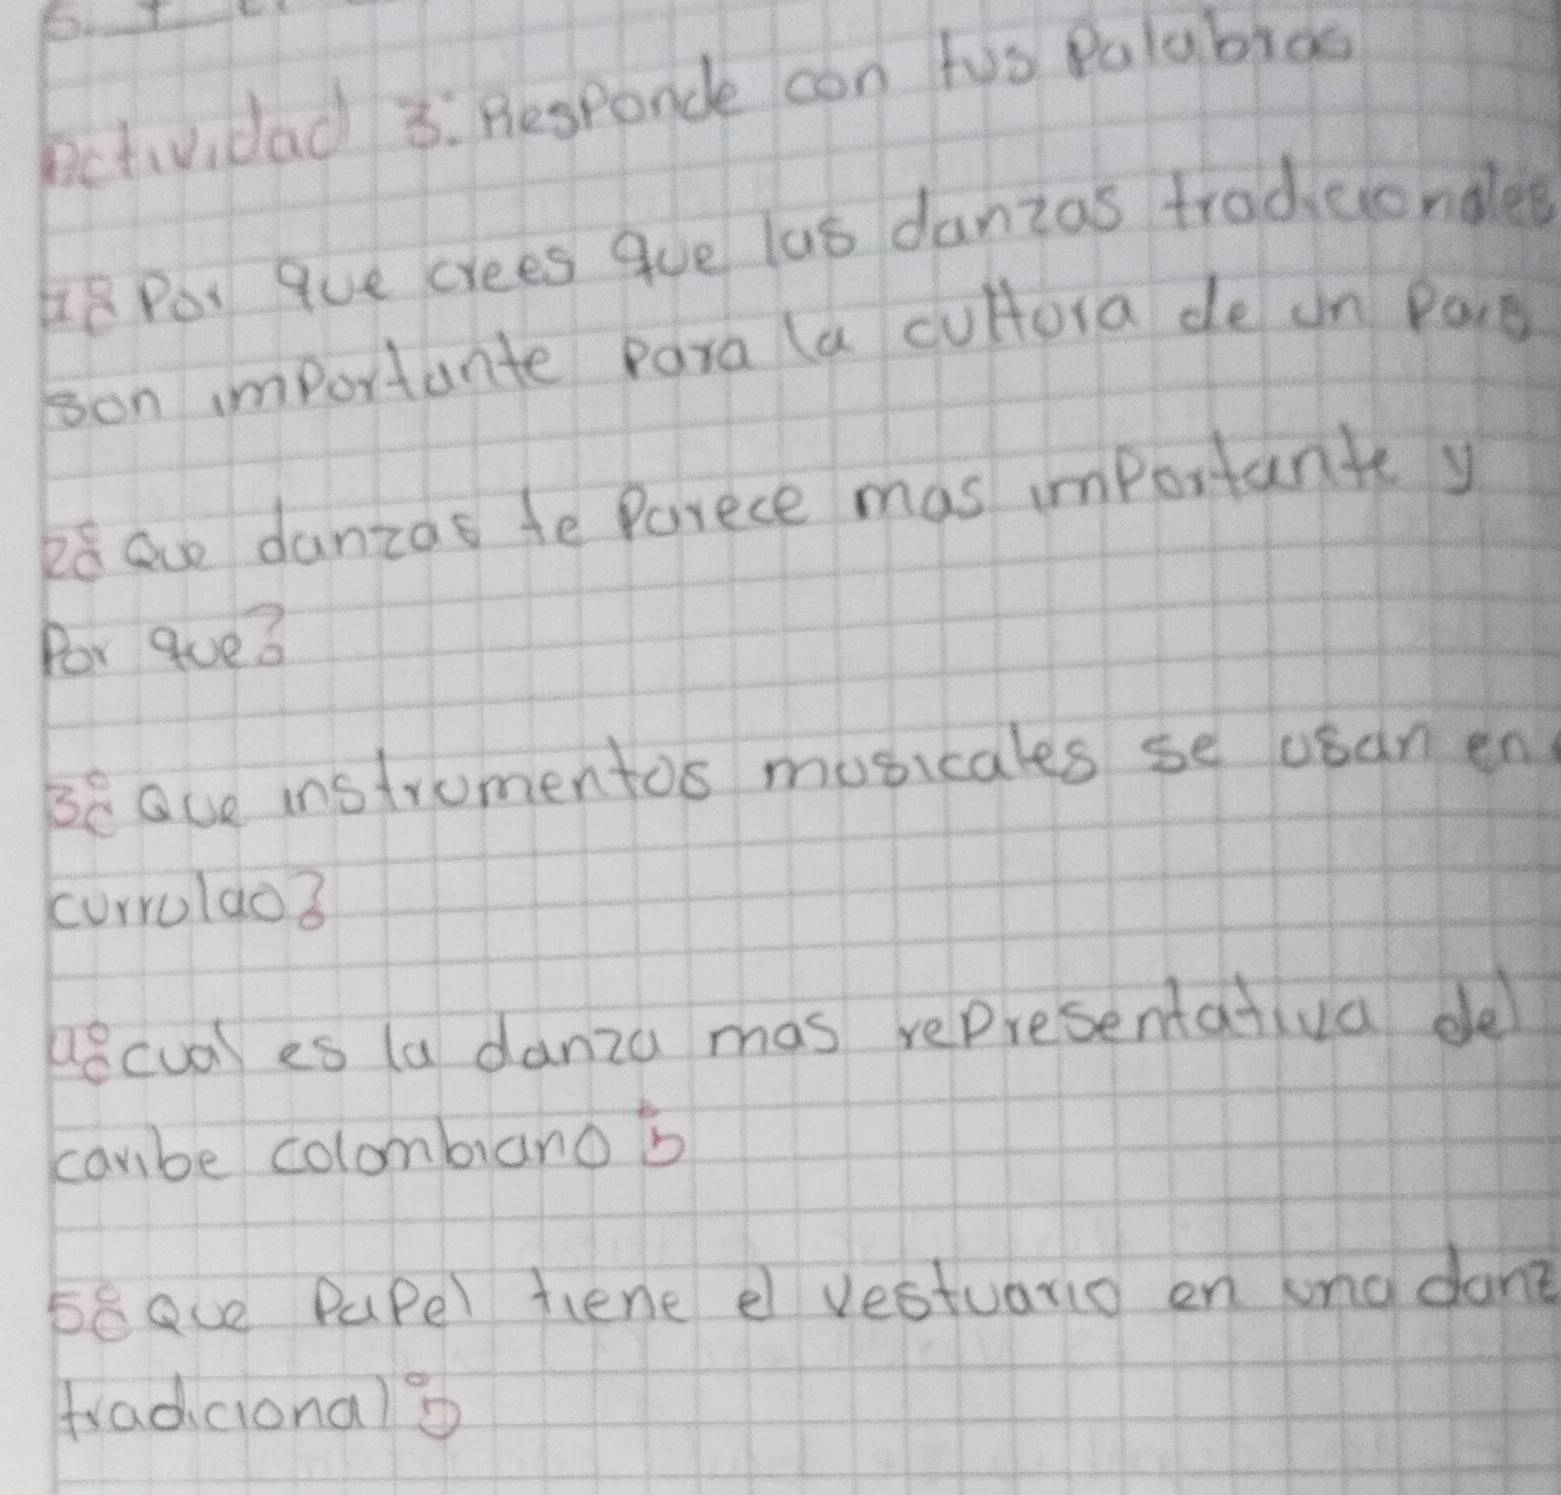 Actividad 3: Responde con tus Palabras
1¿ Por que crees que las danzas tradicionales
son importante para la cultura de un Pais
2¿ Que danzas te Parece mas importante y
Por que?
3¿ Que instrumentos musicales se usan en
currulao?
4¿ cual es la danza mas representativa del
caribe colombiano?
5¿ Que Papel tiene el vestuario en una danz
tradicional?